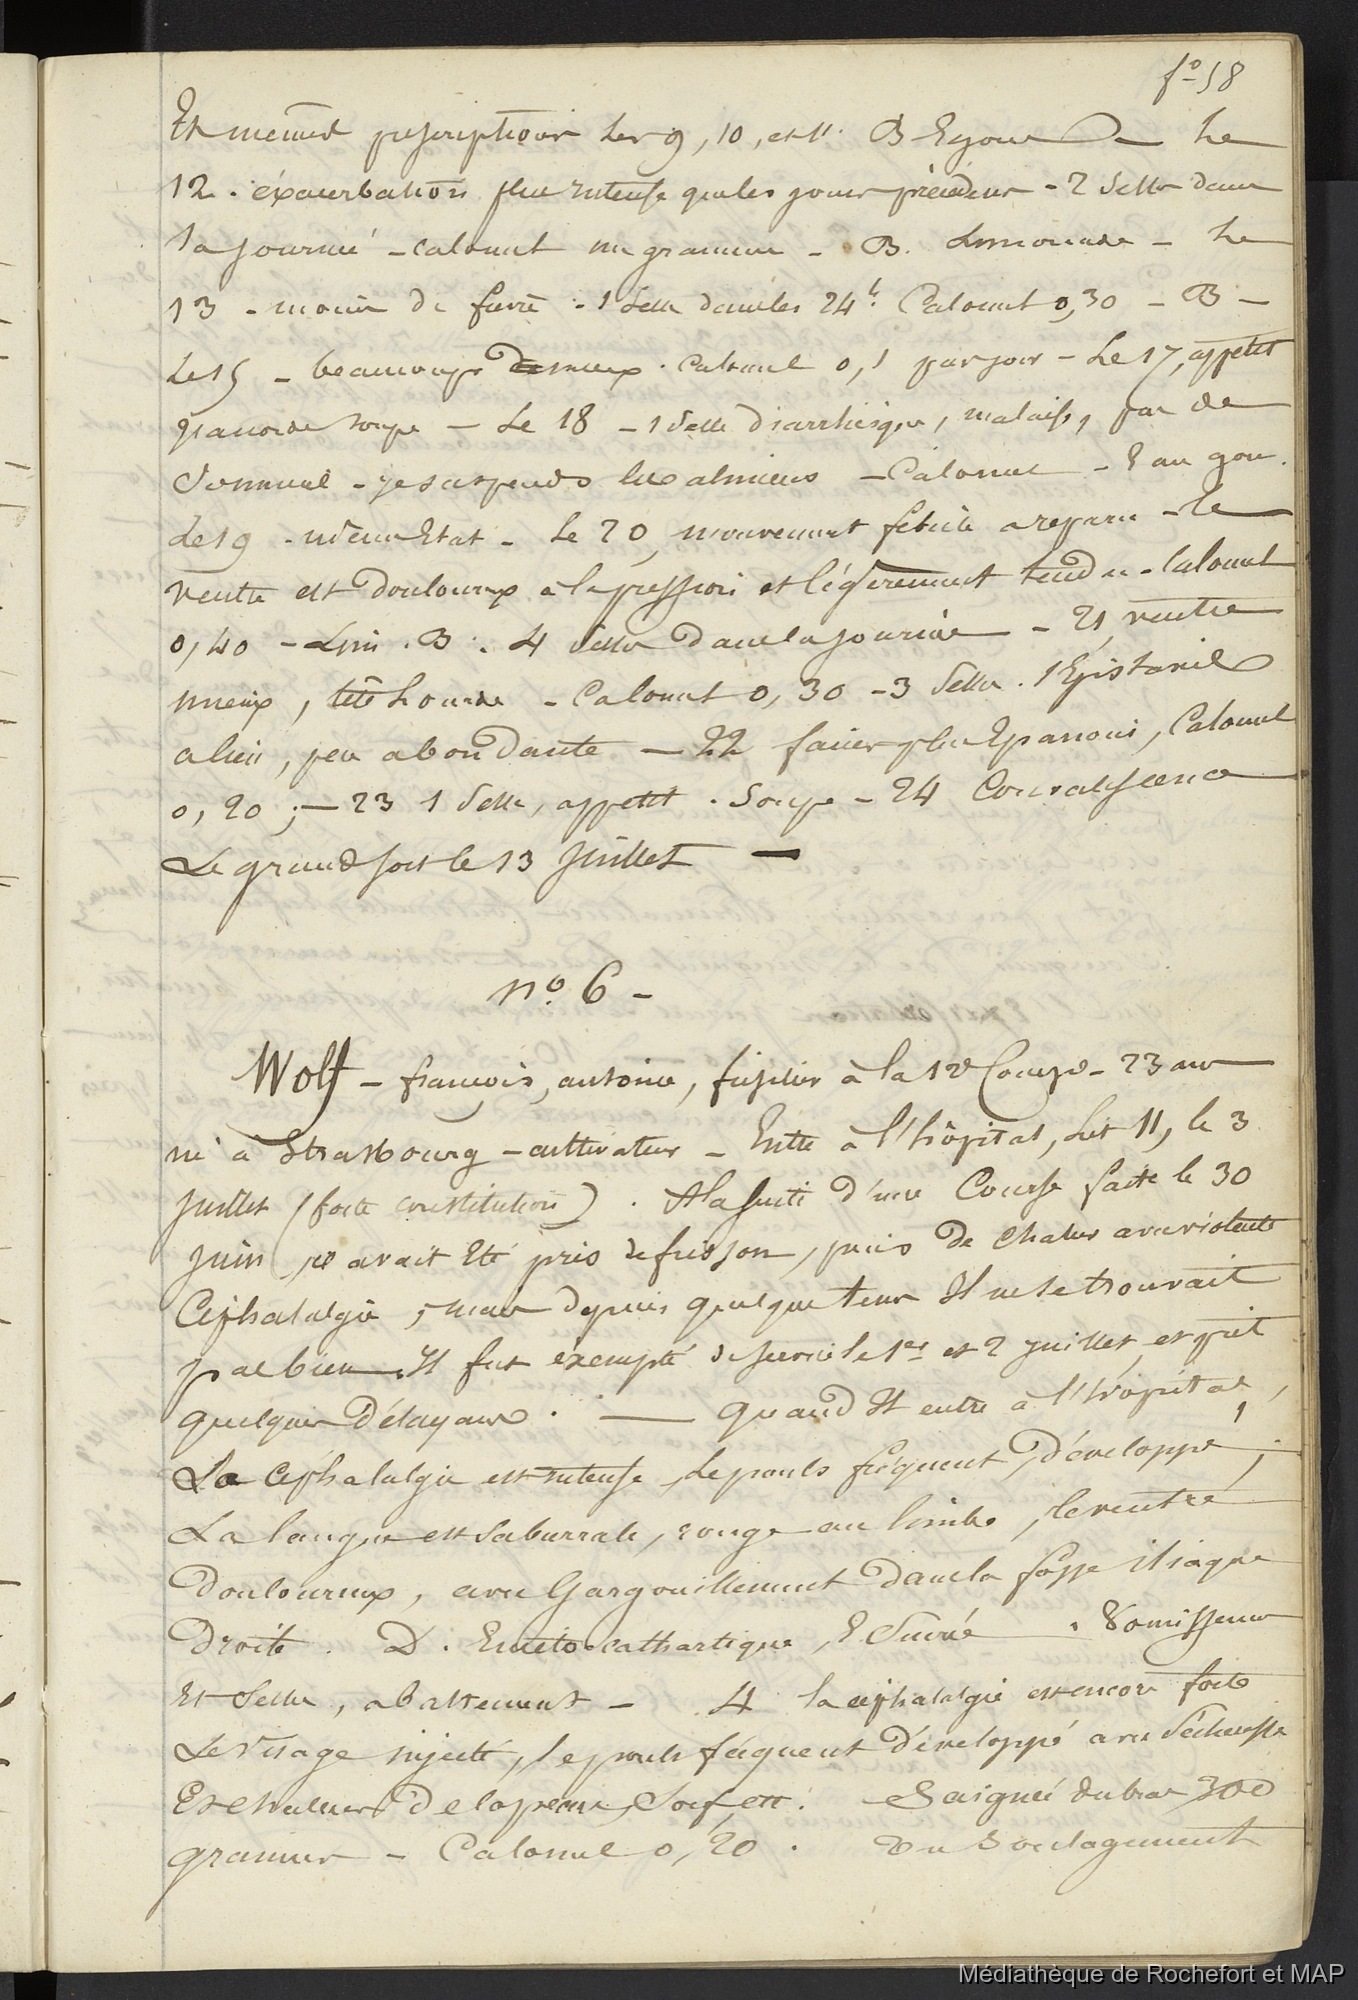 fo 58
Et mêmes prescriptions les 9, 10, et 11. B. E gom Le
12. éxacerbation plus intense que les jours précédens - 2 selles dans
la journée - calomel un gramme - B. Limonade - Le
13 - moins de fièvre - 1 selle dans les 24 h. Calomel 0,30 - B -
Le 15 - beaucoup de mieux. Calomel 0,1 par jour - Le 17, appetit
grand soupe - Le 18 - 1 selle diarrhéique, malaise, pas de
sommeil - je suspends les alimens - Calomel - Eau gom.
Le 19 - même Etat - Le 20, mouvement fébrile a reparu - le
ventre est douloureux à la pression et légèrement tendu - Calomel
0,40 - Lim. B. 4 selles dans la journée - 21, ventre
mieux, tête lourde - Calomel 0,30 - 3 selles. 1 Epistaxis
a lieu, peu abondante - 22 facies plus Epanoui, Calomel
0,20 ; - 23 1 selle, appetit. Soupe - 24 Convalescence
Le grand sort le 13 Juillet -
no. 6 -
Wolf - françois, antoine, fusilier à la 12e Compe - 23 ans
né à Strasbourg - cultivateur - Entre à l'hôpital, Lit 11, le 3
Juillet (forte constitution). A la suite d'une Course faite le 30
Juin, il avait Eté pris de frisson, puis de chaleur avec violente
Cephalalgie, mais depuis quelque tems Il ne se trouvait
pas bien. Il fut éxempté de service le 1er et 2 juillet, et prit
quelques Délayans. - Quand Il entre à l'hôpital,
La Céphalalgie est intense, Le pouls fréquent, développé ;
La langue est Saburrale, rouge au limbe, le ventre
Douloureux, avec Gargouillement dans la fosse iliaque
Droite. D. Emeto-cathartique, E Sucrée. Vomissemens
Et selles, abattement - 4 la cephalalgie est encore forte
Le visage injecté, le pouls fréquent développé avec sécheresse
Et chaleur de la peau, Soif, ett. Saignée du bras 300
grammes - Calomel 0,20. Du Soulagement
Médiathèque de Rochefort et MAP